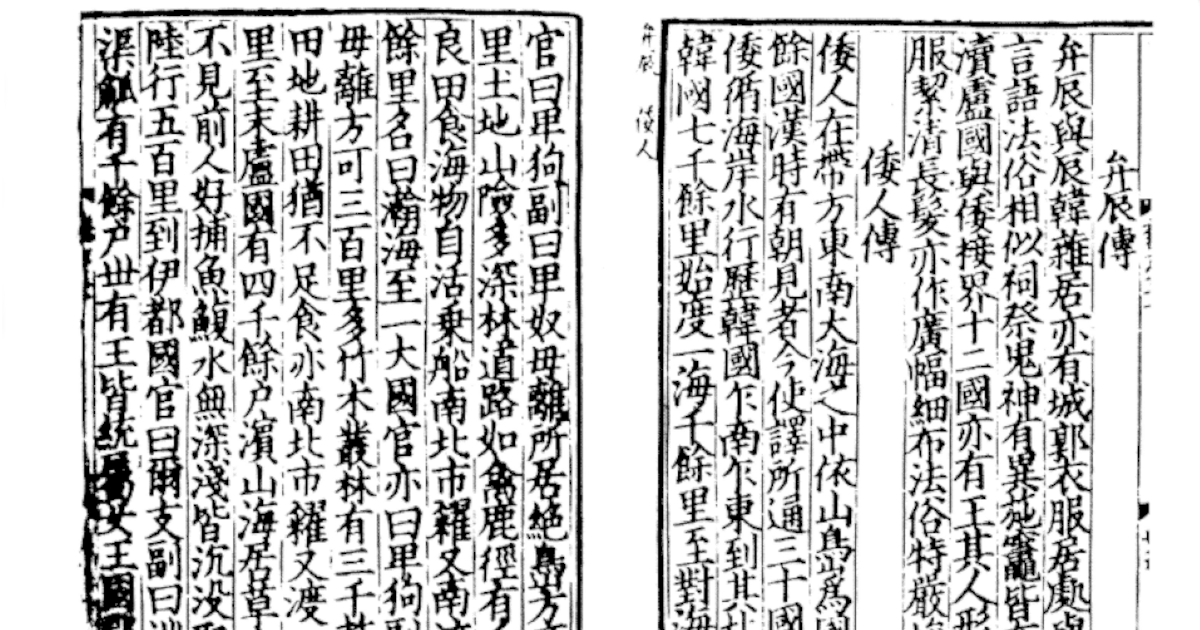 弁辰傳
弁辰與辰韓雜居亦有城郭衣服居處與
言語法俗相似祠祭鬼神有異施竈皆在
瀆盧國與倭接界十二國亦有王其人形
服絜清長髮亦作廣幅細布法俗特嚴
倭人傳
倭人在帶方東南大海之中依山島爲國
餘國漢時有朝見者今使譯所通三十國
倭循海岸水行歷韓國乍南乍東到其北
韓國七千餘里始度一海千餘里至對海
弁辰 倭人
官曰卑狗副曰卑奴毋離所居絶島方
里土地山險多深林道路如禽鹿徑有
良田食海物自活乗船南北市糴又南
餘里名曰瀚海至一大國官亦曰卑狗副
毋離方可三百里多竹木叢林有三千
田地耕田猶不足食亦南北市糴又渡
里至末盧國有四千餘户濵山海居草
不見前人好捕魚鰒水無深淺皆沉没
陸行五百里到伊都國官曰爾支副曰
渠觚有千餘户丗有王皆統屬女王國